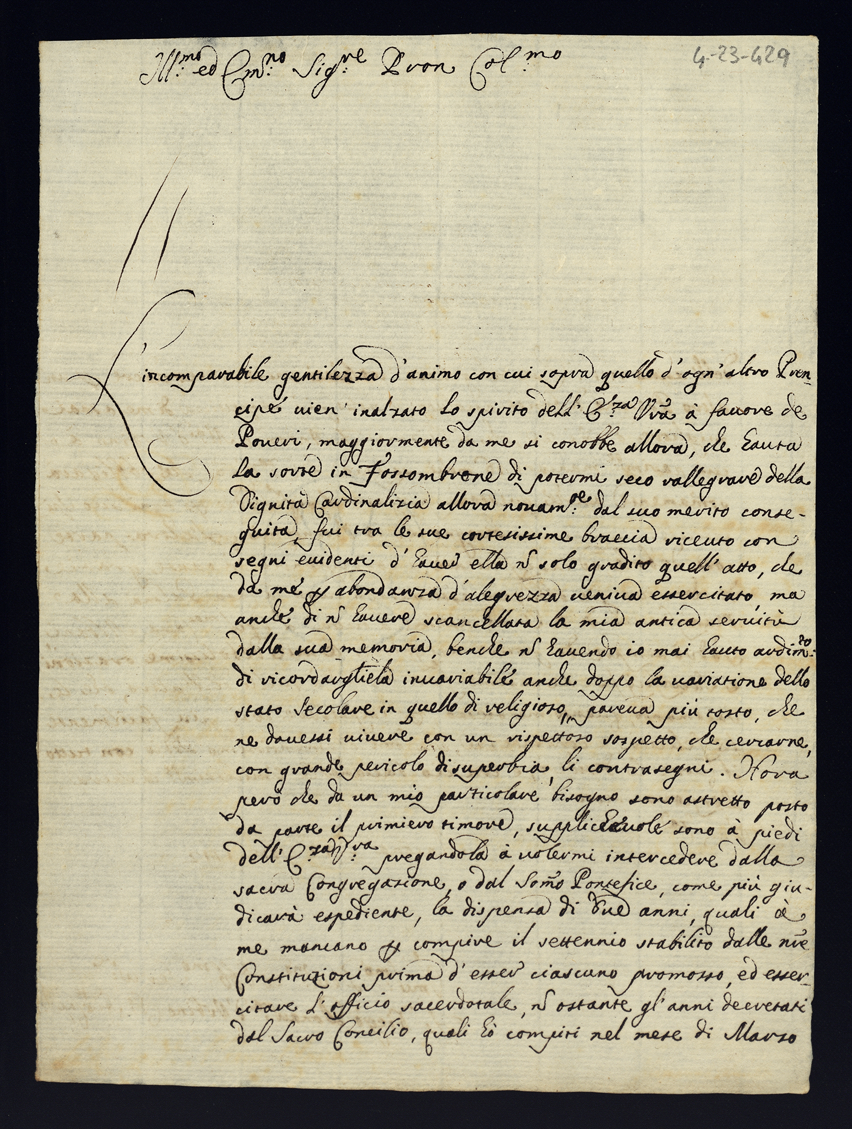 4-23-429
Ill.mo ed Em.no Sig.re Pron Col.mo
L'incomparabile gentilezza d'animo con cui sopra quello d'ogn'altro Pren-
cipe uien' inalzato lo spirito dell'E.za Vrã à fauore de
Poueri, maggiormente da me si conobbe allora, che hauta
la sorte in Fossombrone di potermi seco rallegrare della
Dignità Cardinalizia allora nouam.te dal suo merito conse-
guita, fui tra le sue cortesissime braccia riceuto con
segni euidenti d'hauer ella ñ solo gradito quell'atto, che
da me p abondanza d'alegrezza ueniua essercitato, ma
anche di ñ hauere scancellata la mia antica seruitù
dalla sua memoria, benche ñ hauendo io mai hauto ardim.to
di ricordargliela inuariabile anche doppo la uariatione dello
stato secolare in quello di religioso, pareua più tosto, che
ne douessi uiuere con un rispettoso sospetto, che cercarne,
con grande pericolo di superbia, li contrasegni. Hora
però che da un mio particolare bisogno sono astretto posto
da parte il primiero timore, supplicheuole sono à piedi
dell'E.za Vra pregandola à uolermi intercedere dalla
sacra Congregazione, o dal Som̃o Pontefice, come più giu-
dicarà espediente, la dispensa di due anni, quali à
me mancano p compire il settennio stabilito dalle nrẽ
Constituzioni prima d'esser ciascuno promosso, ed esser-
citare l'officio sacerdotale, ñ ostante gl'anni decretati
dal Sacro Concilio, quali hò compiti nel mese di Marzo